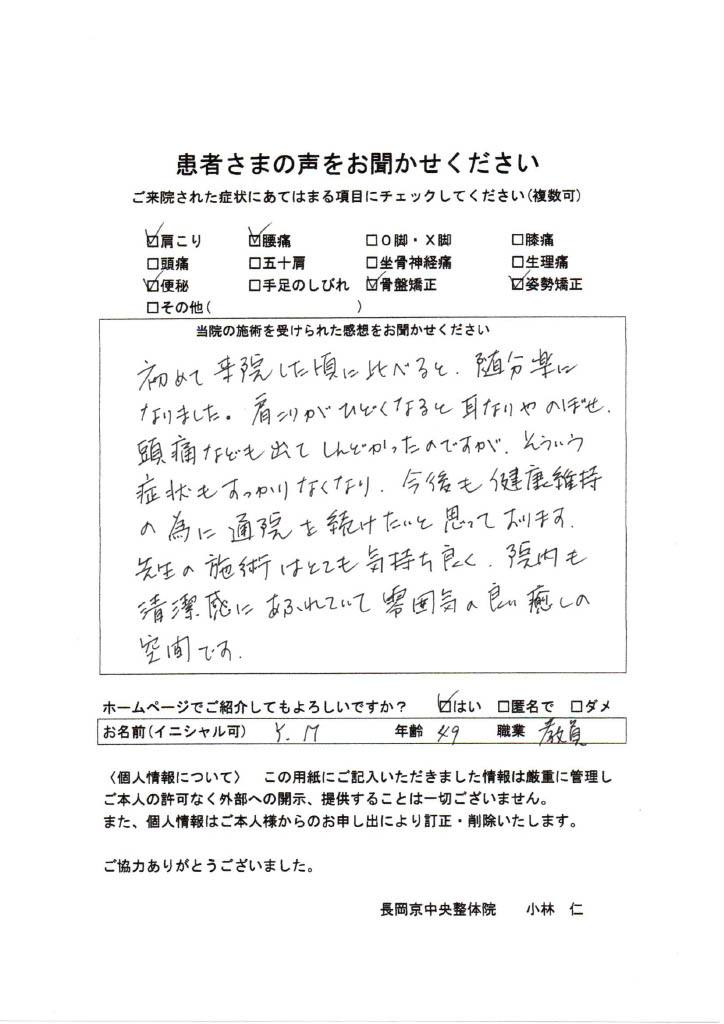 患者さまの声をお聞かせください
ご来院された症状にあてはまる項目にチェックしてください(複数可)
☑肩こり ☑腰痛 □O脚・X脚 □膝痛
□頭痛 □五十肩 □坐骨神経痛 □生理痛
☑便秘 □手足のしびれ ☑骨盤矯正 ☑姿勢矯正
□その他( )
当院の施術を受けられた感想をお聞かせください
初めて来院した頃に比べると、随分楽に
なりました。肩こりがひどくなると耳なりやのぼせ、
頭痛なども出てしんどかったのですが、そういう
症状もすっかりなくなり、今後も健康維持
の為に通院を続けたいと思っております。
先生の施術はとても気持ち良く、院内も
清潔感にあふれていて雰囲気の良い癒しの
空間です。
ホームページでご紹介してもよろしいですか? ☑はい □匿名で □ダメ
お名前(イニシャル可) Y.M 年齢 49 職業 教員
〈個人情報について〉 この用紙にご記入いただきました情報は厳重に管理し
ご本人の許可なく外部への開示、提供することは一切ございません。
また、個人情報はご本人様からのお申し出により訂正・削除いたします。
ご協力ありがとうございました。
長岡京中央整体院 小林 仁